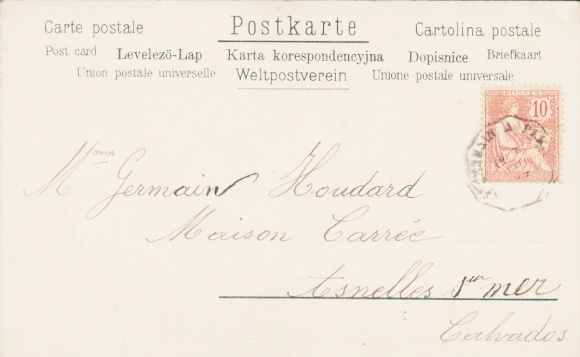 Carte postale Postkarte Cartolina postale
Post card Levelezö-Lap Karta korespondencyjna Dopisnice Briefkaart
Union postale universelle Weltpostverein Unione postale universale
POSTES
10
Mons Germain Houdard
Maison Carrée
Asnelles sur mer
Calvados